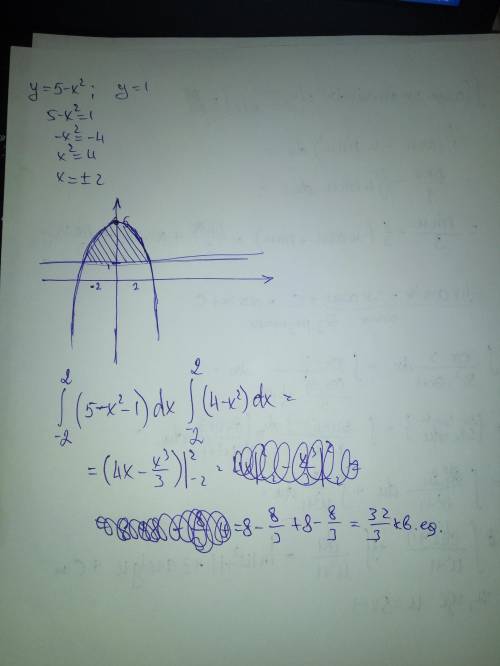 y=5-x²; y=1
5-x²=1
-x²=-4
x²=4
x=±2
5
1
-2 2
∫₋₂² (5-x²-1)dx ∫₋₂² (4-x²)dx=
=(4x-x³/3)|₋₂² =
=8-8/3+8-8/3=32/3 кв.ед.